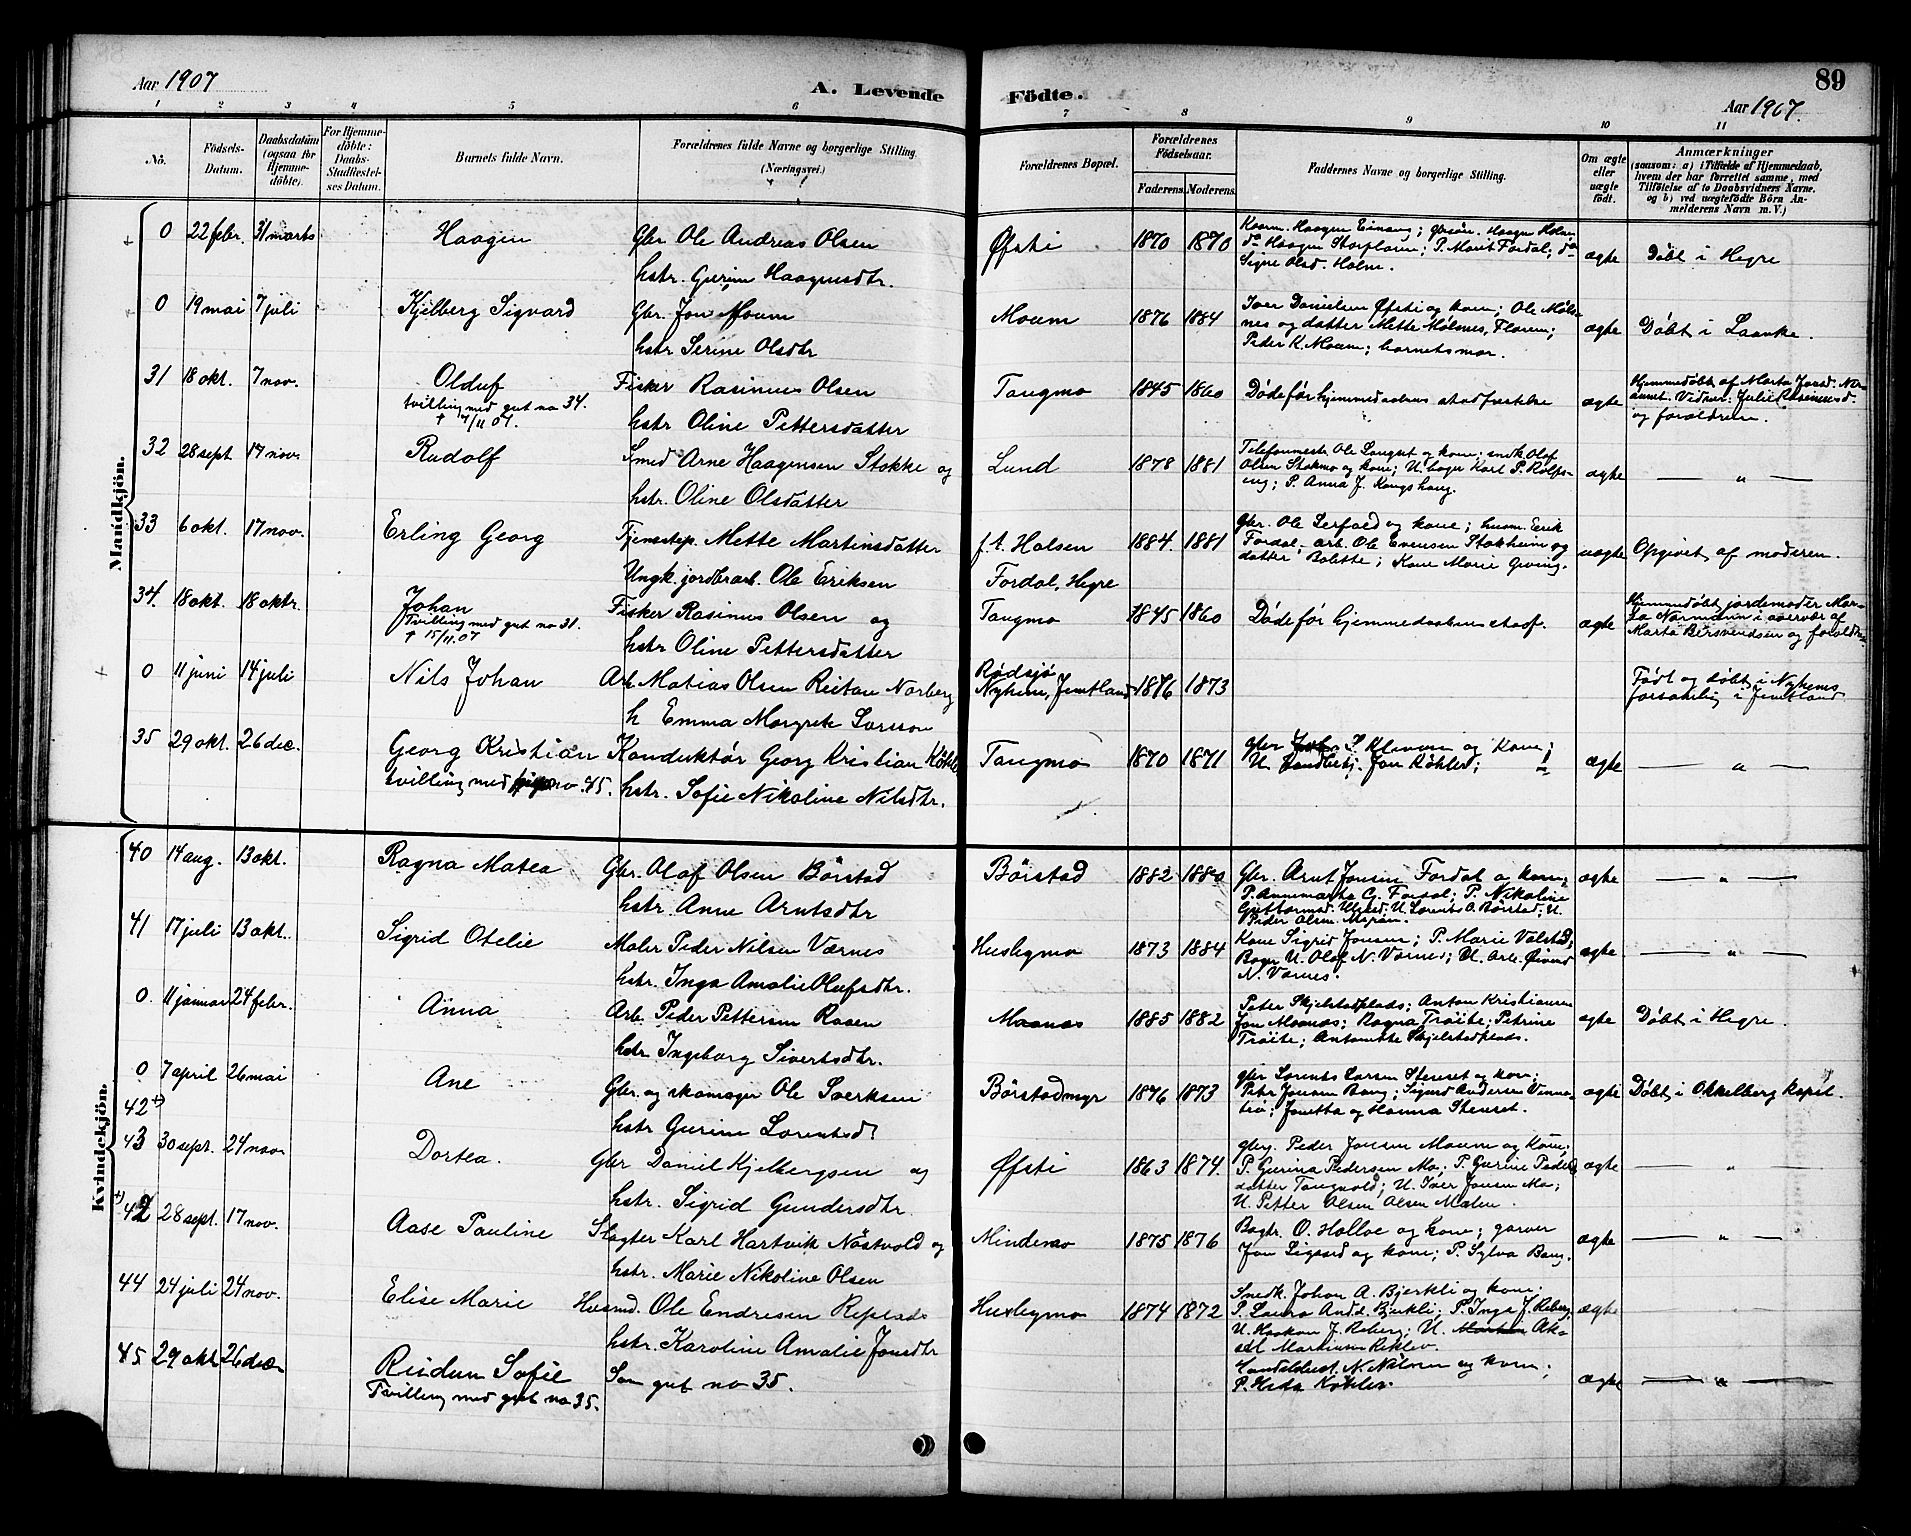 Aar 1907
A. Levende
Födte.
Aar 1907.
89
1 2 3 4 5 6 7 8 9 10 11
No.
Fødsels-Datum.
Daabsdatum (ogsaa for Hjemmedöbte).
For Hjemmedöbte: Daabs-Stadfæstelses Datum.
Barnets fulde Navn.
Forældrenes fulde Navne og borgerlige Stilling. (Næringsvei.)
Forældrenes Bopæl.
Forældrenes Födselsaar.
Faderens. Moderens.
Faddernes Navne og borgerlige Stilling.
Om ægte eller uægte födt.
Anmærkninger
(saasom: a) i Tilfælde af Hjemmedaab, hvem der har forrettet samme, med Tilföielse af to Daabsvidners Navne, og b) ved uægtefödte Börn Anmelderens Navn m. V.)
Mandkjön.
0 22 febr. 31 marts Haagen Gbr. Ole Andreas Olsen
hstr. Gurine Haagensdtr. Øfsti 1870 1870
Signe Olsd. Holme. ægte Døbt i Hegre
0 19 mai 7 juli Kjelberg Sigvard Gbr. Jon Moum
hstr Serine Olsdtr Moum 1876 1884 Iver Danielsen Øfsti og kone; Ole Mølsnes og datter Mette Mølsnes, Floren;
Peder K. Moum; barnets mor. ægte Døbt i Laanke.
31 18 okt. 7 nov. Olduf Fisker Rasmus Olsen
tvilling med gut no 34.
† 7/11 07. hstr. Oline Pettersdatter Tangmo 1845 1860 Døde før hjemmedaabens stadfæstelse ægte
og forældrene.
32 28 sept 17 nov. Rudolf Smed Arne Haagensen Stokke og
hstr. Oline Olsdatter Lund 1878 1881 Telefonmester Ole Langset og kone; snedk. Olof
Olsen Stokmo og kone; U. bager Karl P. Rolfseng; P. Anna J. Kongshaug. ægte — " —
33 6 okt. 17 nov. Erling Georg Tjenestep. Mette Martinsdatter
Ungk. jordbrarb. Ole Eriksen f.t. Halsen
Fordal, Hegre 1884. 1881 gbr. Ole Lerfald og kone; husm. Eerik
Fordal; arb. Ole Evensen Stokheim og
datter Bolette; Kone Marie Geving. uægte Opgivet af moderen.
34. 18 okt. 18 oktr. Johan
Tvilling med gut no 31.
† 15/11.07 Fisker Rasmus Olsen og
hstr. Oline Pettersdatter Tangmo 1845 1860 Døde før hjemmedaabens stadf. ægte Hjemmedøbt jordemoder Marta Normann i nærvær af
Marta Bersvendsen og forældrene
0 11 juni 14 juli Nils Johan Arb. Matias Olsen Reitan Norberg
h Emma Margrete Larsson Rødsjø
Nyhem, Jemtland 1876 1873 Født og døbt i Nyhems
forsamling i Jemtland
35 29 okt. 26 dec. Georg Kristian
tvilling med pige no. 45. Konduktør Georg Kristian Køhler
hstr. Sofie Nikoline Nilsdtr. Tangmo 1870 1871 ægte — " —
Kvindekjön.
40 14 aug. 13 okt. Ragna Matea Gbr. Olof Olsen Børstad
hstr. Anne Arntsdtr Børstad 1882 1880 Gbr. Arnt Jonsen Fordal o kone;
P. Annmarta G. Fordal; P. Nikoline
U. Lorents O. Børstad; U.
Peder Olsen ægte — " —
41 17 juli 13 okt. Sigrid Otelie Maler Peder Nilsen Værnes
hstr. Inga Amalie Olufsdtr. Husbymo 1873 1884 Kone Sigrid Jonsen; P. Marie Valstad;
Bager U. Olaf N. Værnes; U. Arb. Øivind
N. Værnes. ægte — " —
0 11 januar 24 febr. Anna Arb. Peder Pettersen Raaen
hstr. Ingeborg Sivertsdtr. Moanæs 1885 1882 Peter Skjelstadplads; Anton Kristiansen
Jon Moanæs; Ragna Trøite; Petrine
Trøite; Antonette Skjelstadplads. ægte Døbt i Hegre.
0 7 april 26 mai Ane Gbr. og skomager Ole Sverksen
42 +) hstr Gurine Lorentsd Børstadmyr 1876 1873 gbr Lorents Larsen Stenset og kone;
Petr Jonsen Bang; Sigurd Andersen
Jonetta og Hanna Stenset. ægte Døbt i Okkelberg kapel.
43 30 sept. 24 nov. Dortea. Gbr Daniel Kjelbergsen og
hstr. Sigrid Gundersdtr. Øfsti 1863 1874. gbrg. Peder Jonsen Moum og kone;
P. Gurina Pedersen Mo; P. Gurine Pedersdatter Tangvold; U. Iver Jonsen Mo;
U. Petter Olsen Olsen Malen. ægte — " —
+) 42 28 sept. 17 nov. Aase Pauline Slagter Karl Hartvik Nøstvold og
hstr. Marie Nikoline Olsen Mindemo 1875 1876 Bagtr. O. Halloe og kone; garver
Jon Ligaard og kone; P. Sylva Bang. ægte — " —
44 24 juli 24 nov. Elise Marie Husmd. Ole Endresen Replads
hstr. Karoline Amalie Jonsdtr Husbymo 1874 1872 Snedk. Johan A. Bjerkli og kone;
P. Laura Andd. Bjerkli; P. Inga J. Reberg;
U. Haakon J. Reberg; U. Morten Aksel Martinsen Reklev. ægte
45 29 okt 26 dec Reidun Sofie
Tvilling med gut no 35. Som gut no 35. N. Nilsen og kone;
P. Huda Køhler ægte — " —